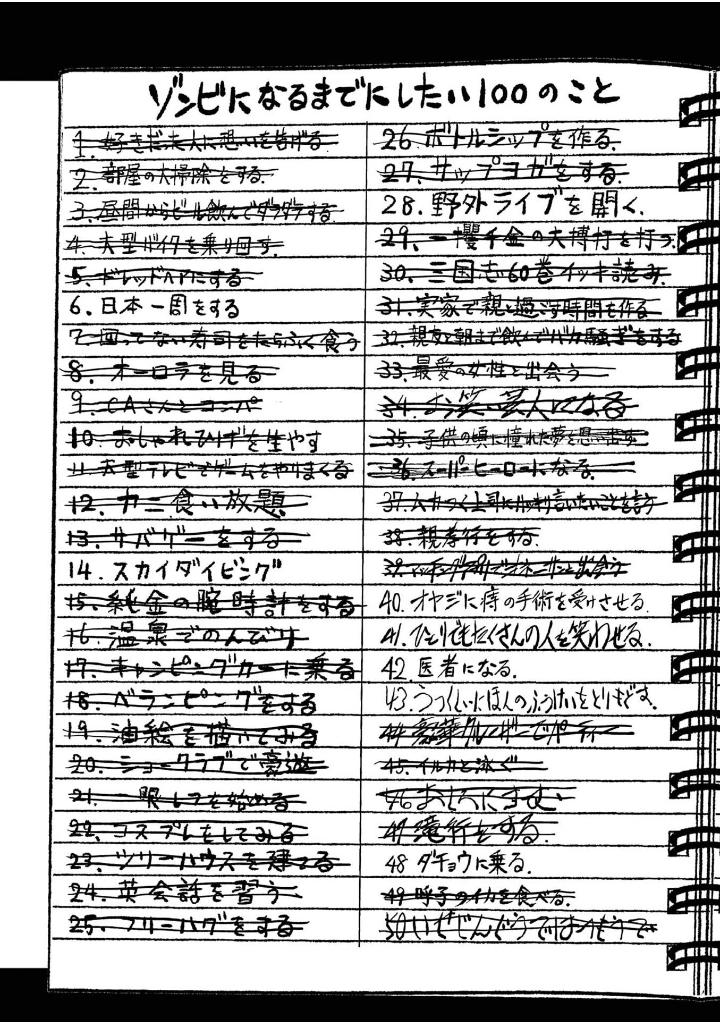 ゾンビになるまでにしたい100のこと
1. 好きだった人に想いを告げる
2. 部屋の大掃除をする
3. 昼間からビール飲んでダラダラする
4. 大型バイクを乗り回す
5. ドレッドヘアにする
6. 日本一周をする
7. 回ってない寿司をたらふく食う
8. オーロラを見る
9. CAさんとコンパ
10. おしゃれひげを生やす
11. 大型テレビでゲームをやりまくる
12. カニ食い放題
13. サバゲーをする
14. スカイダイビング
15. 純金の腕時計をする
16. 温泉でのんびり
17. キャンピングカーに乗る
18. ベランピングをする
19. 油絵を描いてみる
20. ショークラブで豪遊
21. 一眼レフを始める
22. コスプレをしてみる
23. ツリーハウスを建てる
24. 英会話を習う
25. フリーハグをする
26. ボトルシップを作る.
27. サップヨガをする.
28. 野外ライブを開く.
29. 一攫千金の大博打を打つ.
30. 三国志60巻イッキ読み.
31. 実家で親と過ごす時間を作る
32. 親友と朝まで飲んでバカ騒ぎをする
33. 最愛の女性と出会う
34. お笑い芸人になる
35. 子供の頃に憧れた夢を思い出す
36. スーパーヒーローになる.
37. ムカつく上司にハッキリ言いたいことを言う
38. 親孝行をする.
39. と出会う
40. オヤジに痔の手術を受けさせる.
41. ひとりでもたくさんの人を笑わせる.
42. 医者になる.
43. うつくしいにほんのふうけいをとりもどす.
44. 豪華クルーザーでパーティー
45. イルカと泳ぐ
46 おしろにすむ
47 滝行をする.
48 ダチョウに乗る.
49 呼子のイカを食べる.
50 いぜじんぐうではつもうで